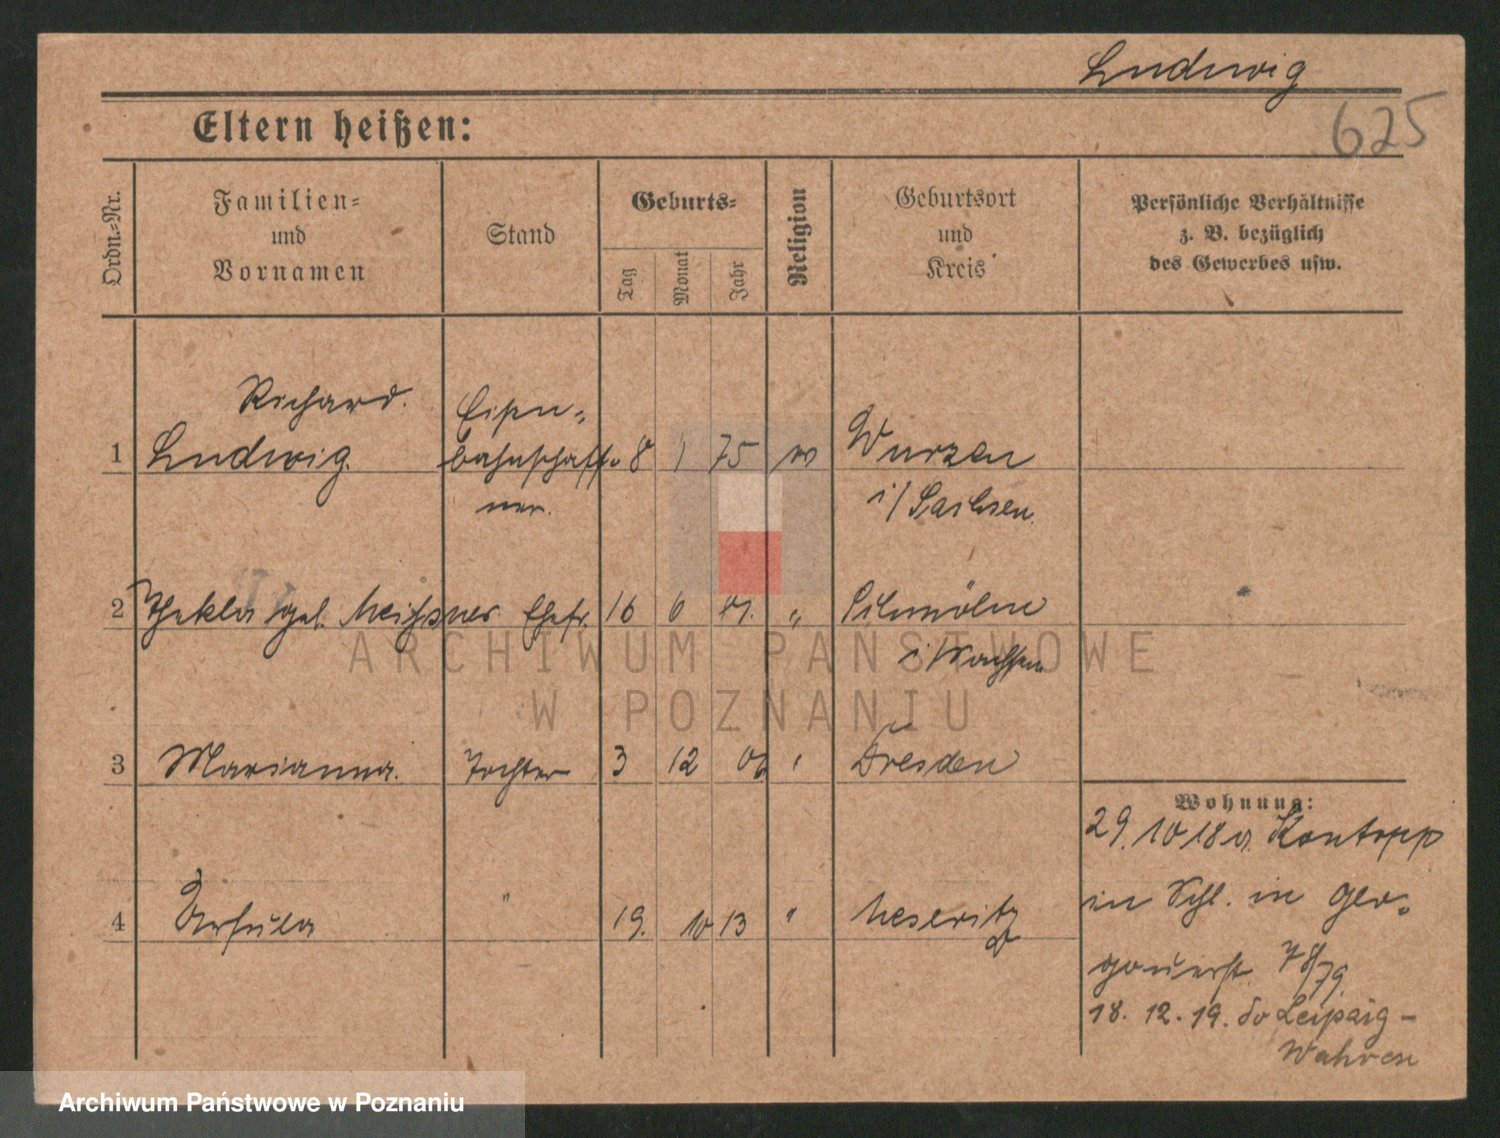 Ludwig
625
Eltern heißen:
Ordn.-Nr.
Familien-
und
Vornamen
Stand
Geburts-
Tag
Monat
Jahr
Religion
Geburtsort
und
Kreis
Persönliche Verhältnisse
z. B. bezüglich
des Gewerbes usw.
Richard
1 Ludwig. Eisen-
bahnschaff- 8 1 75 Wurzen
ner. i/ Sachsen.
2 Thekla geb. Meißner Ehefr. 16 6 "
i/ Sachsen
3 Marianna. Tochter 3 12 06 " Dresden
4 Ursula " 19. 10 13 " Meseritz
Wohnung:
29. 10 18 a. Kontopp
in Schl. in
78/79
18. 12. 19. do Leipzig-
Wahren
ARCHIWUM PAŃSTWOWE
W POZNANIU
Archiwum Państwowe w Poznaniu